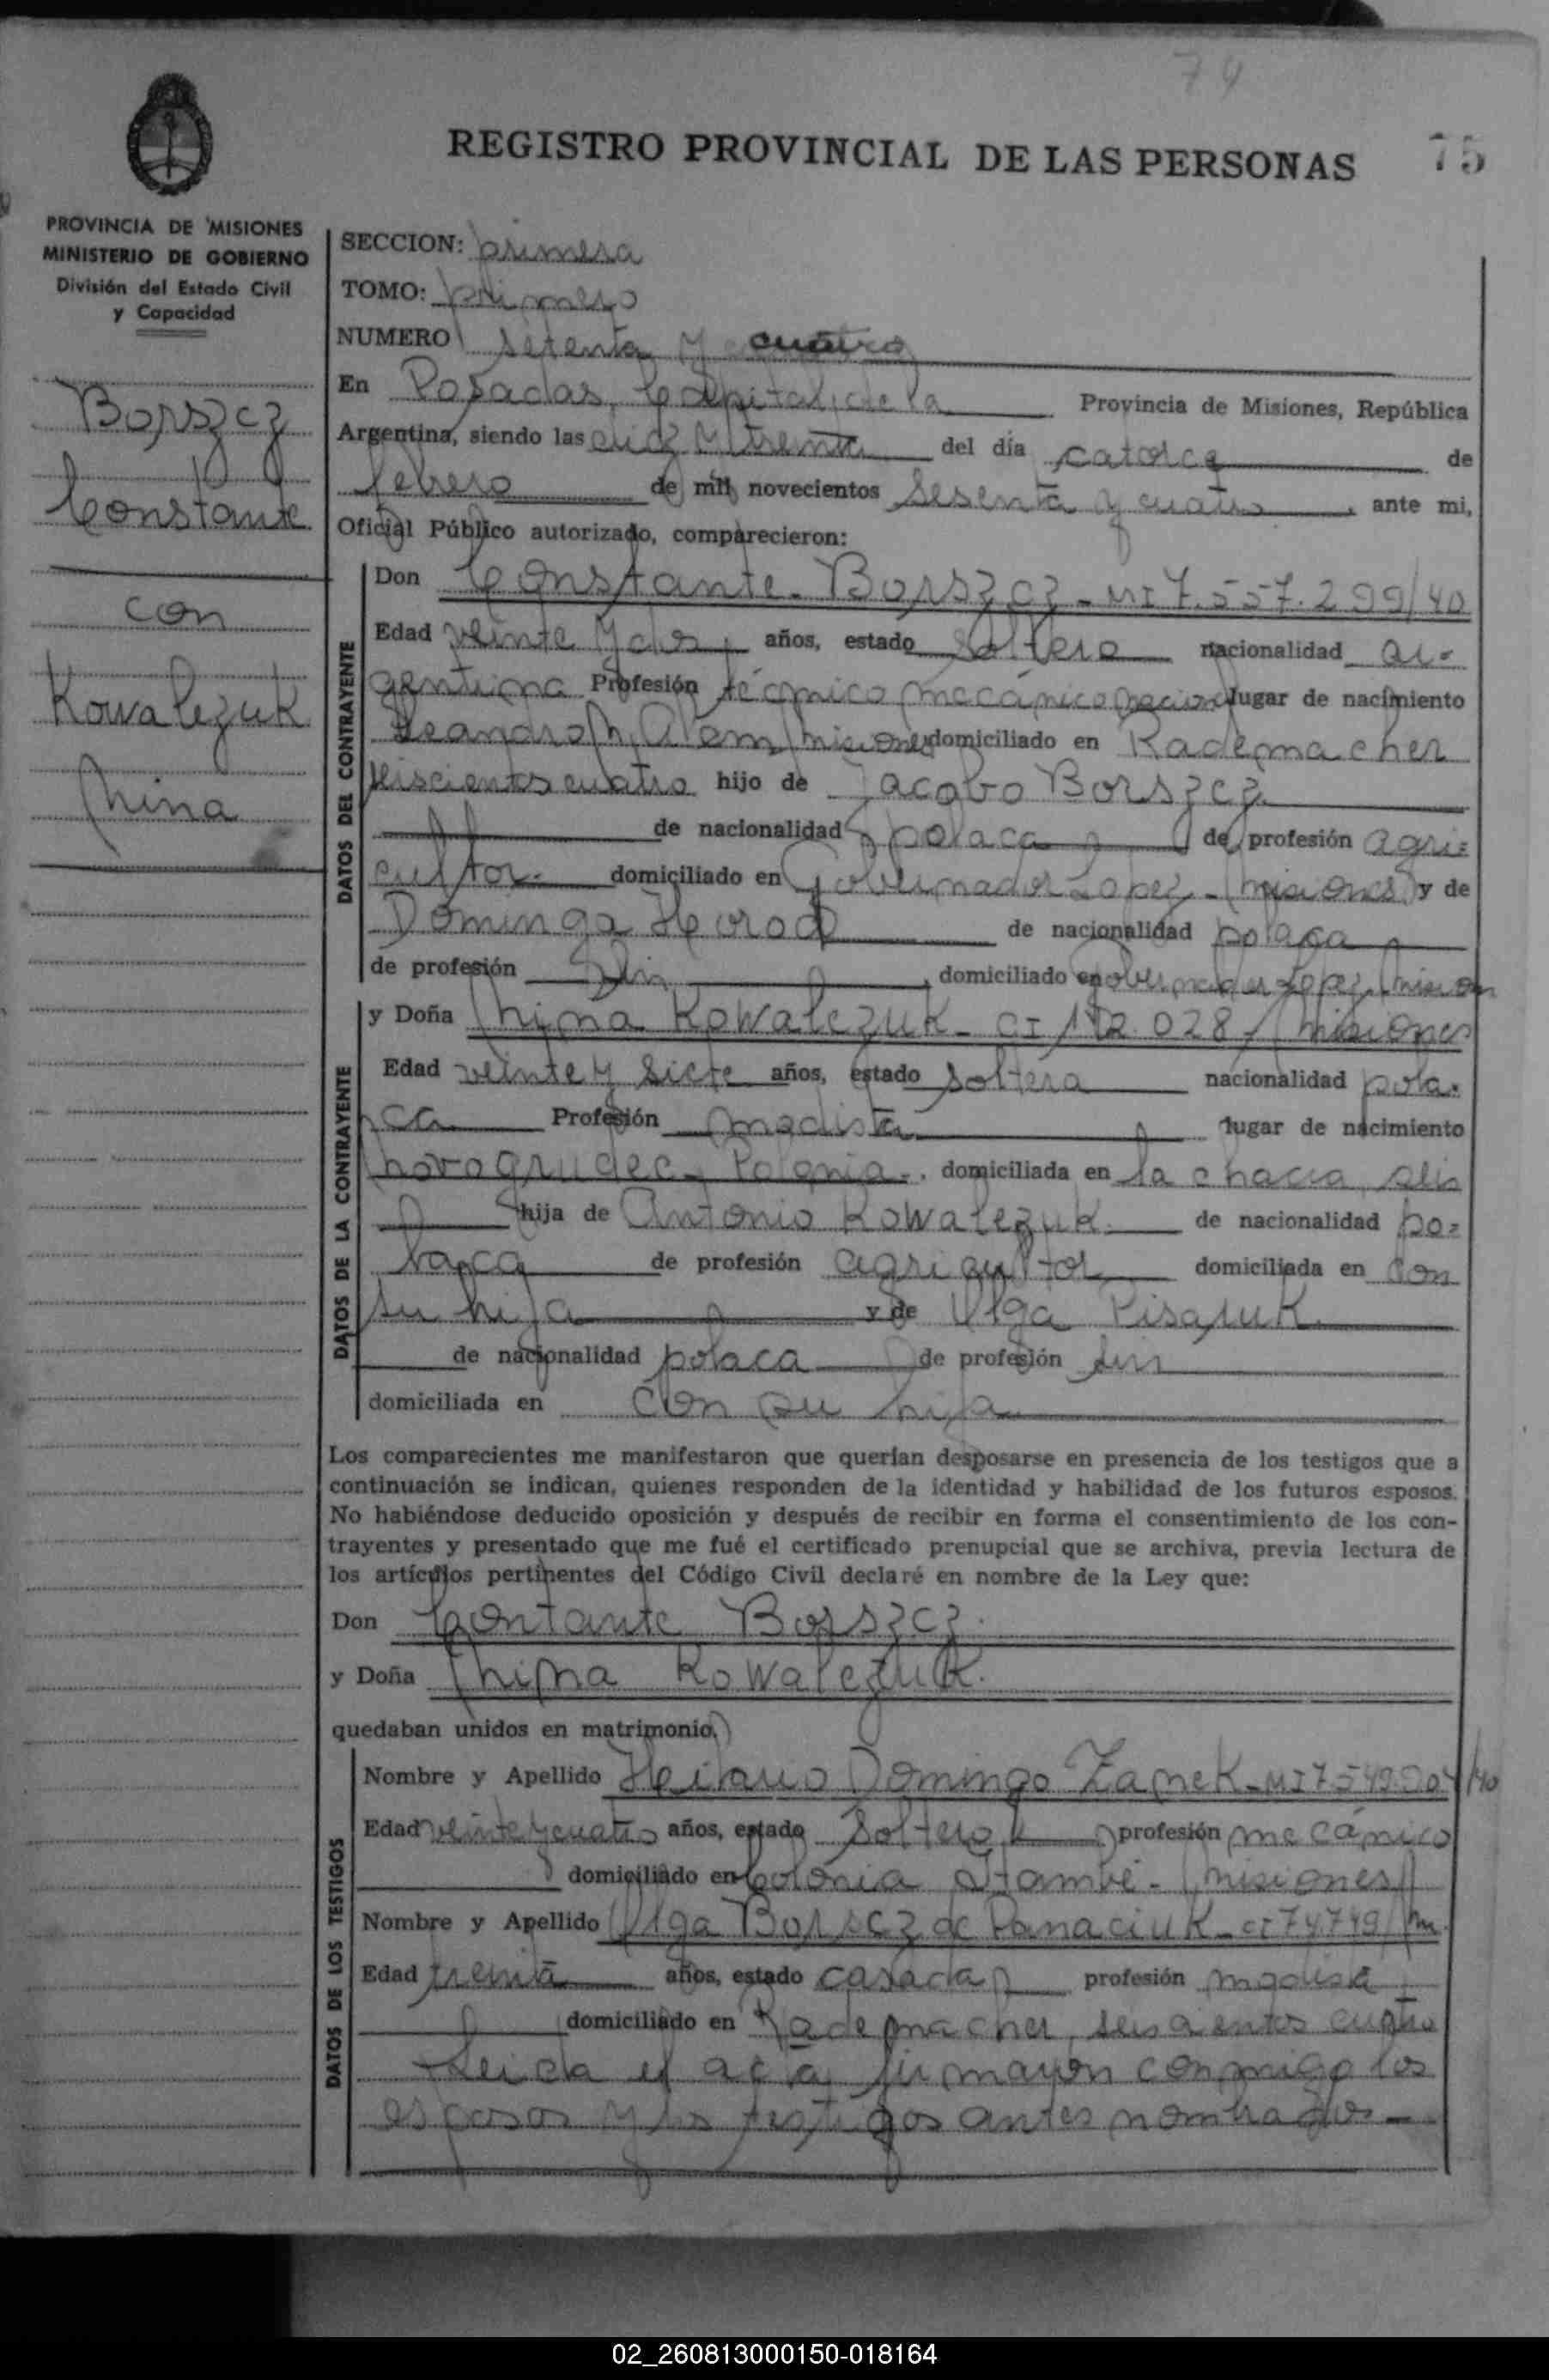 74
REGISTRO PROVINCIAL DE LAS PERSONAS 75
PROVINCIA DE MISIONES
MINISTERIO DE GOBIERNO
División del Estado Civil
y Capacidad
Borszcz
Constante
con
Kowalczuk
Nina
SECCION: primera
TOMO: primero
NUMERO setenta y cuatro
En Posadas, Capital de la Provincia de Misiones, República
Argentina, siendo las diez y treinta del día catorce de
febrero de mil novecientos sesenta y cuatro, ante mi,
Oficial Público autorizado, comparecieron:
DATOS DEL CONTRAYENTE
Don Constante Borszcz - MI 7.557.299/40
Edad veinte y dos años, estado soltero nacionalidad ar=
gentina Profesión técnico mecánico nacional lugar de nacimiento
Leandro N. Alem Misiones domiciliado en Rademacher
seiscientos cuatro hijo de Jacobo Borszcz
de nacionalidad polaca de profesión agri=
cultor domiciliado en Gobernador Lopez - Misiones y de
Dominga Horod de nacionalidad polaca
de profesión sin, domiciliado en Gobernador Lopez Mision
DATOS DE LA CONTRAYENTE
y Doña Nina Kowalczuk - CI 112.028 / Misiones
Edad veinte y siete años, estado soltera nacionalidad pola=
ca Profesión modista lugar de nacimiento
Novogrudec - Polonia., domiciliada en la chacra seis
hija de Antonio Kowalczuk de nacionalidad po=
laca de profesión agricultor domiciliada en con
su hija y de Olga Pisaruk
de nacionalidad polaca de profesión sin
domiciliada en con su hija
Los comparecientes me manifestaron que querían desposarse en presencia de los testigos que a
continuación se indican, quienes responden de la identidad y habilidad de los futuros esposos.
No habiéndose deducido oposición y después de recibir en forma el consentimiento de los con-
trayentes y presentado que me fué el certificado prenupcial que se archiva, previa lectura de
los artículos pertinentes del Código Civil declaré en nombre de la Ley que:
Don Contante Borszcz.
y Doña Nina Kowalczuk.
quedaban unidos en matrimonio.
DATOS DE LOS TESTIGOS
Nombre y Apellido Hilario Domingo Zanek - MI 7.549.904/40
Edad veinte y cuatro años, estado soltero profesión mecánico
domiciliado en Colonia Itambé - Misiones
Nombre y Apellido Olga Borscz de Panaciuk - CI 74749/M.
Edad treinta años, estado casada profesión modista
domiciliado en Rademacher, seiscientos cuatro
Leida el acta firmaron conmigo los
esposos y los testigos antes nombrados -
02_260813000150-018164